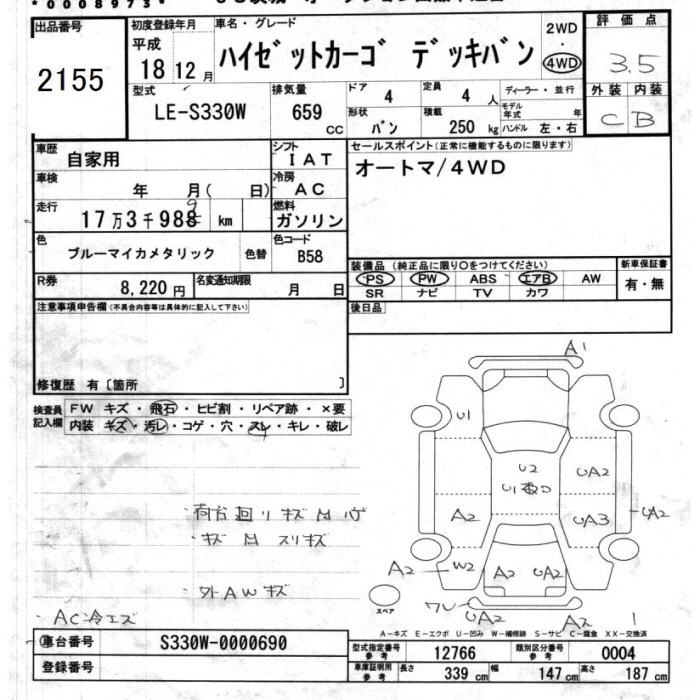 *0008973*
出品番号
2155
初度登録年月
平成
18 12 月
車名・グレード
ハイゼットカーゴ デッキバン
2WD
・
4WD
評価点
3.5
外装 内装
C B
型式
LE-S330W
排気量
659
cc
ドア 4
定員 4 人
ディーラー・並行
モデル年式 年
形状 バン
積載 250 kg
ハンドル 左・右
車歴 自家用
シフト IAT
セールスポイント(正常に機能するものに限ります)
オートマ/4WD
車検 年 月( 日)
冷房 AC
走行 17万3千988 km
燃料 ガソリン
色 ブルーマイカメタリック 色替
色コード B58
装備品 (純正品に限り○をつけてください)
新車保証書
PS PW ABS エアB AW
有・無
SR ナビ TV カワ
R券 8,220円
名変通知期限 月 日
後日品
注意事項申告欄(不具合内容等は具体的に記入して下さい)
修復歴 有〔箇所 〕
検査員記入欄
FW キズ・飛石・ヒビ割・リペア跡・×要
内装 キズ・汚レ・コゲ・穴・スレ・キレ・破レ
A1
U1
U2
UA2
A2
UA3
UA2
A2
W2
A2
UA2
ワレ
UA2
A2
1
荷台回りキズ凹
キズ凹スリキズ
外AWキズ
AC冷エズ
スペア
A-キズ E-エクボ U-凹み W-補修跡 S-サビ C-腐食 XX-交換済
車台番号 S330W-0000690
登録番号
型式指定番号 参考 12766
類別区分番号 参考 0004
車庫証明用 参考 長さ 339 cm 幅 147 cm 高さ 187 cm